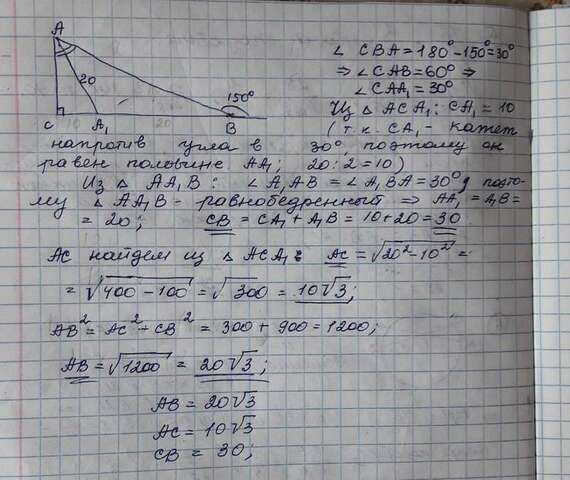 A
20
C
A₁
20
B
150°
∠CBA = 180° - 150° = 30°
⇒ ∠CAB = 60° ⇒
∠CAA₁ = 30°
Из △ACA₁: CA₁ = 10
(т.к CA₁ - катет
напротив угла в 30°, поэтому он
равен половине AA₁; 20:2=10)
Из △AA₁B: ∠A₁AB = ∠A₁BA = 30°, поэто-
му △AA₁B - равнобедренный ⇒ AA₁ = A₁B =
= 20; CB = CA₁ + A₁B = 10 + 20 = 30
AC найдем из △ACA₁: AC = √20² - 10² =
= √400 - 100 = √300 = 10√3;
AB² = AC² + CB² = 300 + 900 = 1200;
AB = √1200 = 20√3;
AB = 20√3
AC = 10√3
CB = 30;